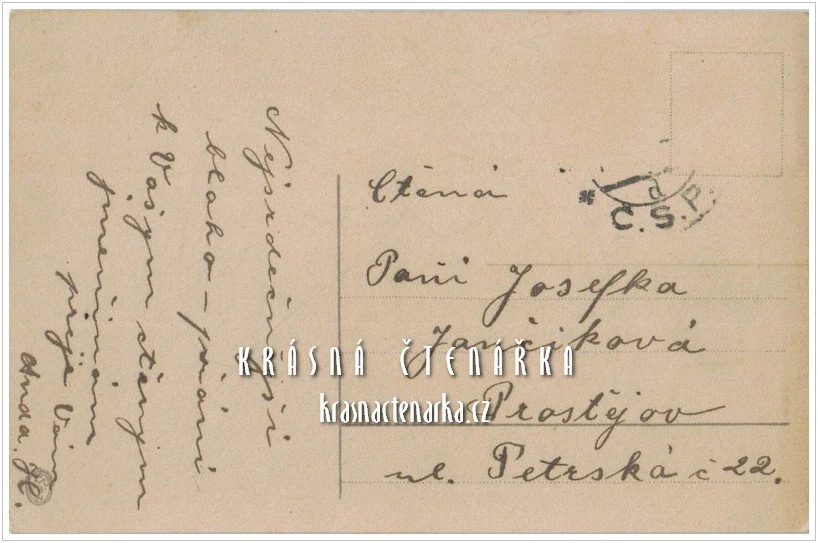 Nejsrdečnější
blaho-přání
k Vašym ctěnym
jmeninám
přeje Vám
Anda. H.
Ctěná
Paní Josefka
Jančíková
Prostějov
ul. Petrská č 22.
* Č.S.P.
KRÁSNÁ ČTENÁŘKA
krasnactenarka.cz